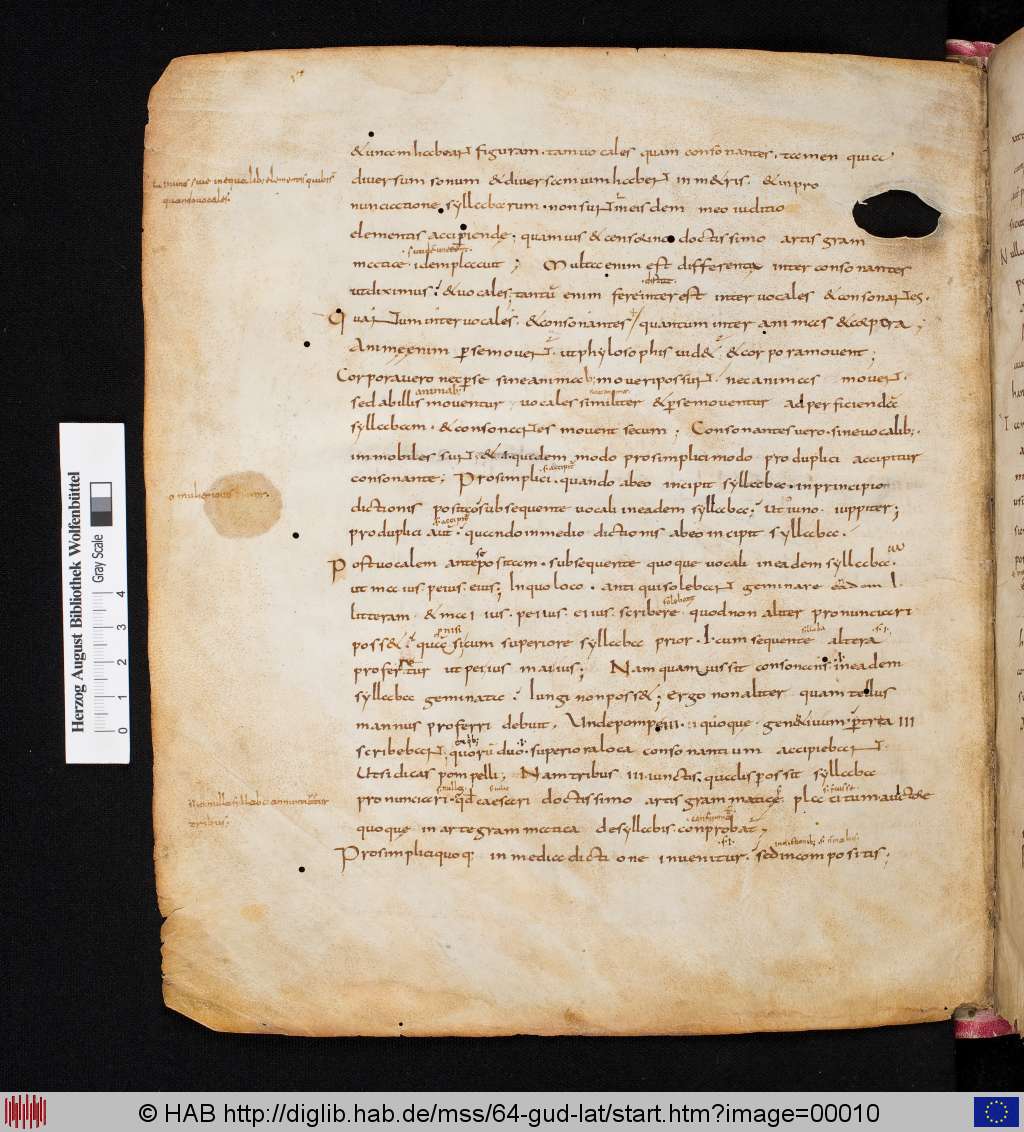 & unam habeant figuram. tam vocales quam consonantes. tamen quia
diversum sonum & diversam vim habent in m&ris. & in pro
nunciatione syllabarum. non sunt in eisdem meo iuditio
elementis accipiende; quamvis & censorino doctissimo artis gram
matice idem placuit; Multa enim est differentia inter consonantes
ut diximus. & vocales; tantū enim fere interest inter vocales & consonantes.
Quantum inter vocales. & consonantes / quantum inter animas & corpora;
Animę enim per se moventur. ut phylosophis vid&. & corpora movent;
Corpora vero nec per se sine animab; moveri possunt. nec animas movent.
sed ab illis moventur vocales similiter & per se moventur ad perficiendā
syllabam. & consonantes movent secum; Consonantes vero. sine vocalib;.
immobiles sunt; & .i. quidem modo pro simplici modo pro duplici accipitur
consonante; Pro simplici. quando ab eo incipit syllaba. in principio
dictionis posita subsequente vocali in eadem syllaba; ut iuno. iuppiter;
pro duplici aut. quando in medio dictionis ab eo incipit syllaba.
Post vocalem ante positam. subsequente quoque vocali in eadem syllaba.
ut maius. peius. eius; In quo loco. antiqui solebant geminare eādem .I.
litteram & maiius. peiius. eiius. scribere quod non aliter pronunciari
poss&. quam si cum superiore syllaba prior .I. cum sequente altera
profertur ut peiius maiius; Nam quamvis sit consonans in eadem
syllaba geminata. iungi non poss&; ergo non aliter quam tellus
mannus proferri debuit. Unde pompeiii. quoque gen&ivum. per tria III
scribebant. quorū duo. superiora loca consonantium accipiebant.
Ut si dicas pompelli; Nam tribus .III. iunctis. qualis possit syllaba
pronunciari. qd caesari doctissimo artis grammaticę placitum auctore
quoque in arte grammatica de syllabis. conprobat;
Pro simplici quoq; in media dictione invenitur. sed in compositis;
Herzog August Bibliothek Wolfenbüttel
Gray Scale
0 1 2 3 4
© HAB http://diglib.hab.de/mss/64-gud-lat/start.htm?image=00010